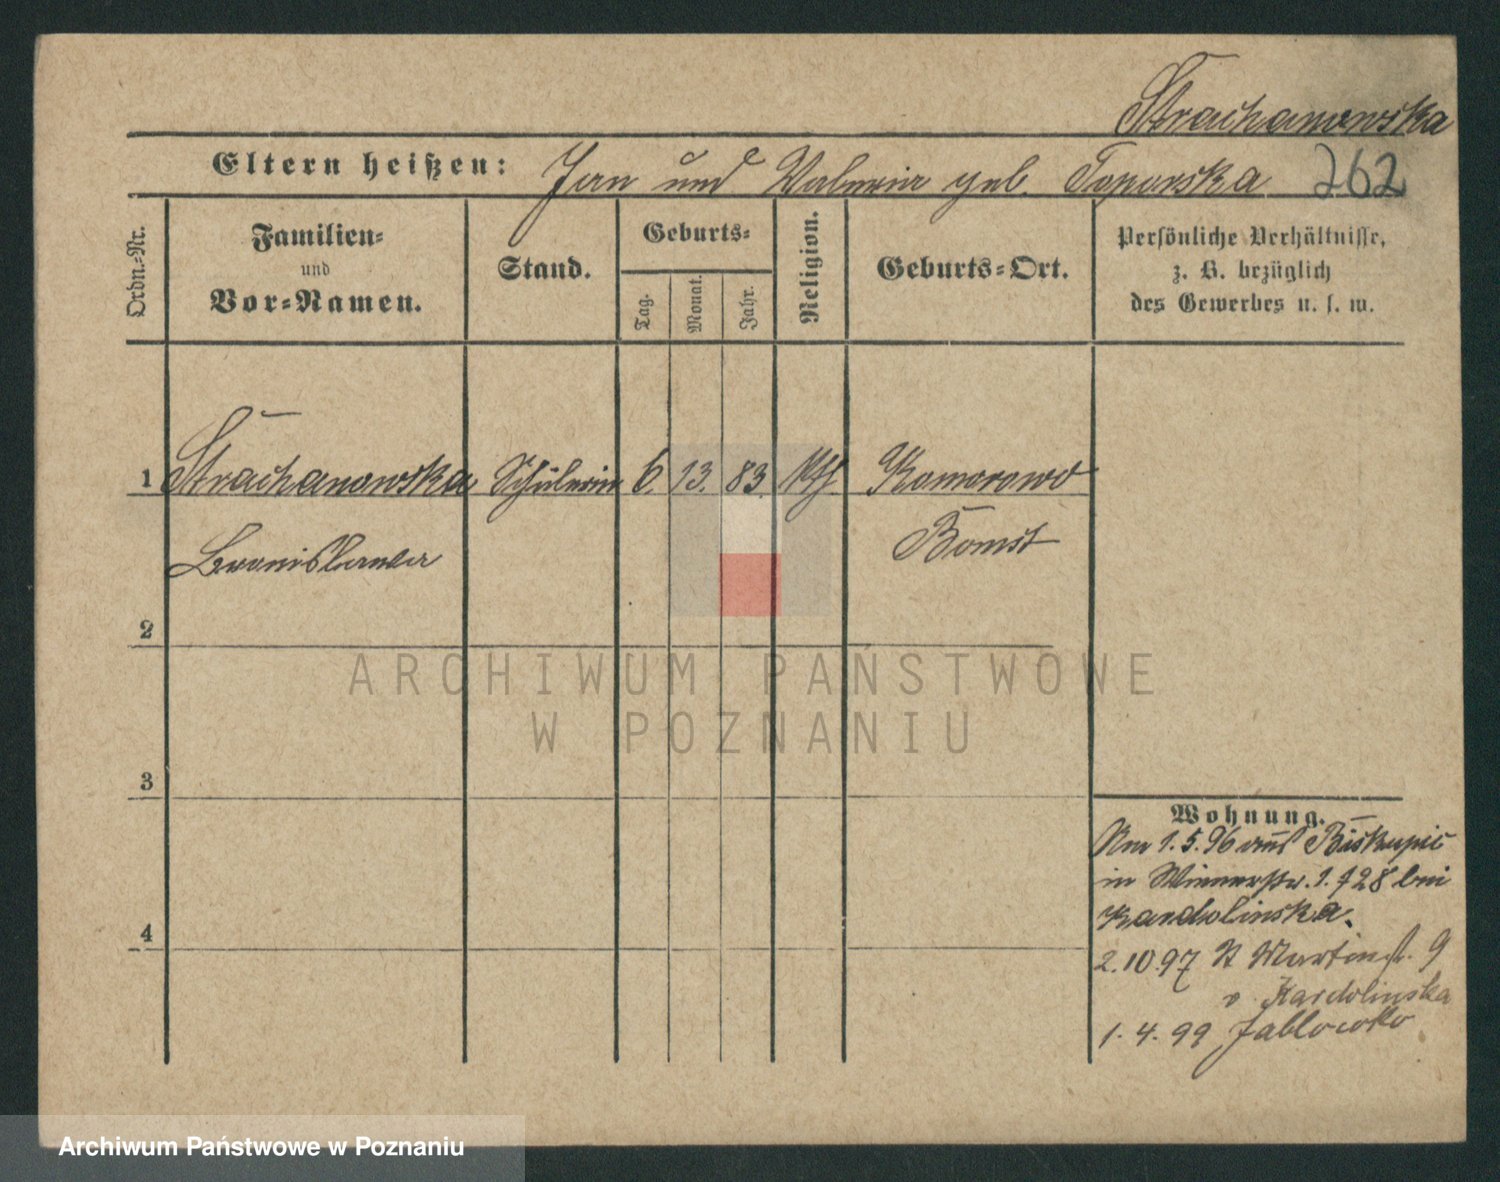 Strachanowska
Eltern heißen: Jan und Valeria geb. Toporska 262
Ordn.-Nr.
Familien-
und
Vor-Namen.
Stand.
Geburts-
Tag. Monat. Jahr.
Religion.
Geburts-Ort.
Persönliche Verhältnisse,
z. B. bezüglich
des Gewerbes u. s. w.
1 Strachanowska Schülerin 6. 13. 83. kth. Komorowo
Bronislawa Bomst
2
3
4
Wohnung.
Am 1.5.96 aus Biskupic
in Wienerstr. 1. 728 bei
Kardolinska.
2.10.97 St Martinst. 9
v. Kardolinska
1.4.99 Jablowko
ARCHIWUM PAŃSTWOWE
W POZNANIU
Archiwum Państwowe w Poznaniu